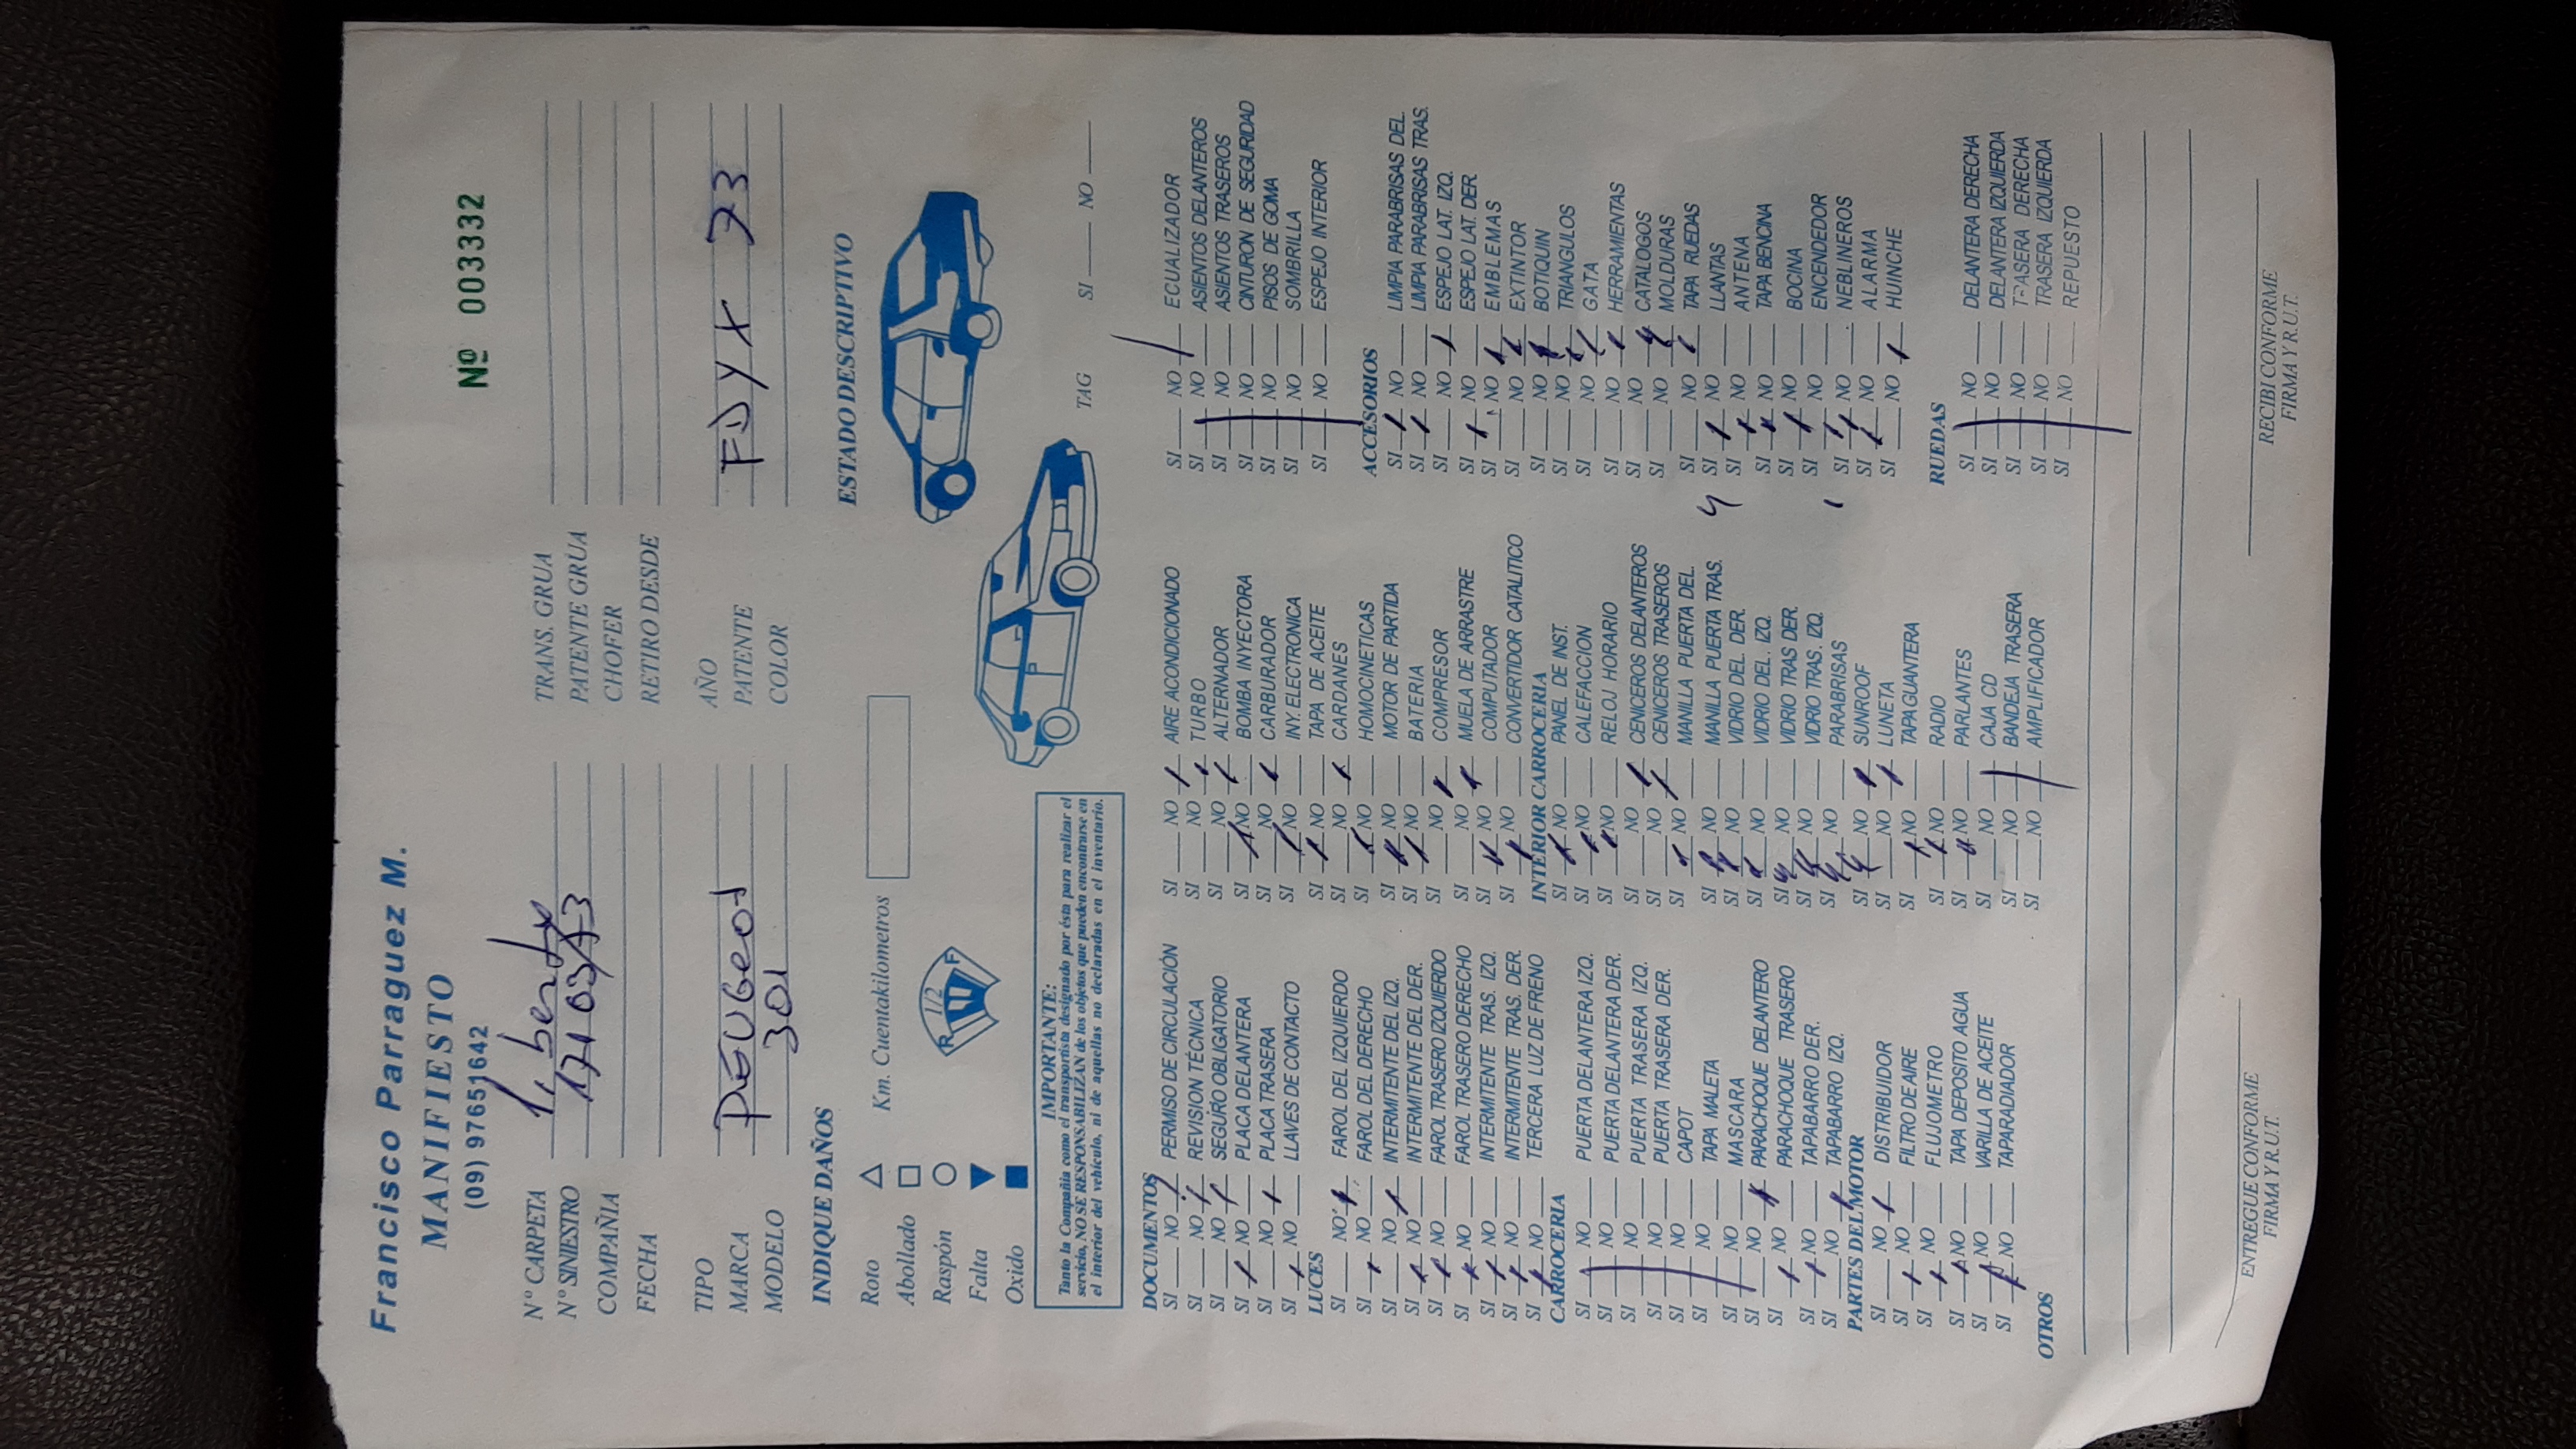 Francisco Parraguez M.
MANIFIESTO
(09) 97651642
Nº 003332
Nº CARPETA
Nº SINIESTRO
COMPAÑIA
FECHA
TRANS. GRUA
PATENTE GRUA
CHOFER
RETIRO DESDE
TIPO
MARCA PEUGeot
MODELO 301
AÑO
PATENTE FDYX 73
COLOR
INDIQUE DAÑOS
Roto
Abollado
Raspón
Falta
Oxido
Km. Cuentakilometros
R 1/2 F
ESTADO DESCRIPTIVO
IMPORTANTE:
Tanto la Compañia como el transportista designado por ésta para realizar el
servicio, NO SE RESPONSABILIZAN de los objetos que pueden encontrarse en
el interior del vehículo, ni de aquellas no declaradas en el inventario.
TAG SI NO
DOCUMENTOS
SI NO PERMISO DE CIRCULACIÓN
SI NO REVISION TÉCNICA
SI NO SEGURO OBLIGATORIO
SI NO PLACA DELANTERA
SI NO PLACA TRASERA
SI NO LLAVES DE CONTACTO
LUCES
SI NO FAROL DEL IZQUIERDO
SI NO FAROL DEL DERECHO
SI NO INTERMITENTE DEL IZQ.
SI NO INTERMITENTE DEL DER.
SI NO FAROL TRASERO IZQUIERDO
SI NO FAROL TRASERO DERECHO
SI NO INTERMITENTE TRAS. IZQ.
SI NO INTERMITENTE TRAS. DER.
SI NO TERCERA LUZ DE FRENO
CARROCERIA
SI NO PUERTA DELANTERA IZQ.
SI NO PUERTA DELANTERA DER.
SI NO PUERTA TRASERA IZQ.
SI NO PUERTA TRASERA DER.
SI NO CAPOT
SI NO TAPA MALETA
SI NO MASCARA
SI NO PARACHOQUE DELANTERO
SI NO PARACHOQUE TRASERO
SI NO TAPABARRO DER.
SI NO TAPABARRO IZQ.
PARTES DEL MOTOR
SI NO DISTRIBUIDOR
SI NO FILTRO DE AIRE
SI NO FLUJOMETRO
SI NO TAPA DEPOSITO AGUA
SI NO VARILLA DE ACEITE
SI NO TAPARADIADOR
OTROS
SI NO AIRE ACONDICIONADO
SI NO TURBO
SI NO ALTERNADOR
SI NO BOMBA INYECTORA
SI NO CARBURADOR
SI NO INY. ELECTRONICA
SI NO TAPA DE ACEITE
SI NO CARDANES
SI NO HOMOCINETICAS
SI NO MOTOR DE PARTIDA
SI NO BATERIA
SI NO COMPRESOR
SI NO MUELA DE ARRASTRE
SI NO COMPUTADOR
SI NO CONVERTIDOR CATALITICO
INTERIOR CARROCERIA
SI NO PANEL DE INST.
SI NO CALEFACCION
SI NO RELOJ HORARIO
SI NO CENICEROS DELANTEROS
SI NO CENICEROS TRASEROS
SI NO MANILLA PUERTA DEL.
SI NO MANILLA PUERTA TRAS.
SI NO VIDRIO DEL. DER.
SI NO VIDRIO DEL. IZQ.
SI NO VIDRIO TRAS DER.
SI NO VIDRIO TRAS. IZQ.
SI NO PARABRISAS
SI NO SUNROOF
SI NO LUNETA
SI NO TAPAGUANTERA
SI NO RADIO
SI NO PARLANTES
SI NO CAJA CD
SI NO BANDEJA TRASERA
SI NO AMPLIFICADOR
SI NO ECUALIZADOR
SI NO ASIENTOS DELANTEROS
SI NO ASIENTOS TRASEROS
SI NO CINTURON DE SEGURIDAD
SI NO PISOS DE GOMA
SI NO SOMBRILLA
SI NO ESPEJO INTERIOR
ACCESORIOS
SI NO LIMPIA PARABRISAS DEL.
SI NO LIMPIA PARABRISAS TRAS.
SI NO ESPEJO LAT. IZQ.
SI NO ESPEJO LAT. DER.
SI NO EMBLEMAS
SI NO EXTINTOR
SI NO BOTIQUIN
SI NO TRIANGULOS
SI NO GATA
SI NO HERRAMIENTAS
SI NO CATALOGOS
SI NO MOLDURAS
SI NO TAPA RUEDAS
4 SI NO LLANTAS
SI NO ANTENA
SI NO TAPA BENCINA
SI NO BOCINA
SI NO ENCENDEDOR
SI NO NEBLINEROS
SI NO ALARMA
SI NO HUINCHE
RUEDAS
SI NO DELANTERA DERECHA
SI NO DELANTERA IZQUIERDA
SI NO TRASERA DERECHA
SI NO TRASERA IZQUIERDA
SI NO REPUESTO
ENTREGUE CONFORME
FIRMA Y R.U.T.
RECIBI CONFORME
FIRMA Y R.U.T.